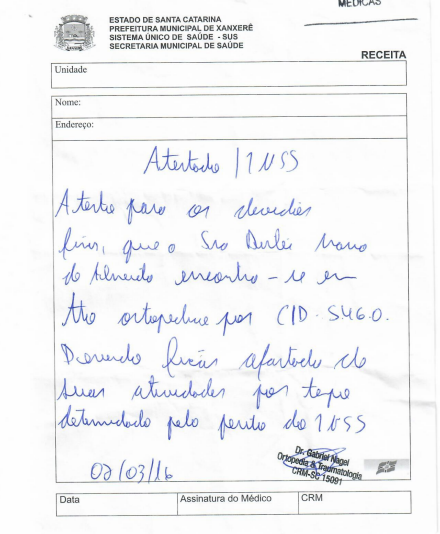 MÉDICAS
ESTADO DE SANTA CATARINA
PREFEITURA MUNICIPAL DE XANXERÊ
SISTEMA ÚNICO DE SAÚDE - SUS
SECRETARIA MUNICIPAL DE SAÚDE
RECEITA
Unidade
Nome:
Endereço:
Atestado / INSS
Atesto para os devidos
fins, que o Sra
de Almeida encontra-se em
tto ortopedico por CID. S46.0.
Devendo ficar afastado de
suas atividades por tempo
determidado pelo perito do INSS
Dr. Gabriel Nagel
Ortopedia & Traumatologia
CRM-SC 15091
02/03/16
Data
Assinatura do Médico
CRM